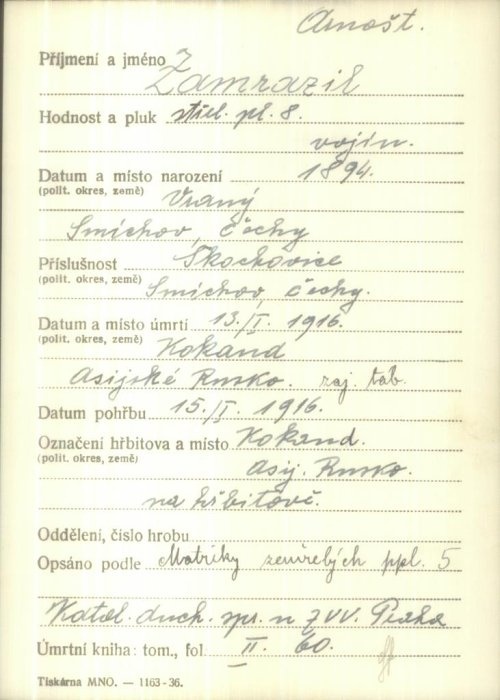 Arnošt.
Příjmení a jméno Zamrazil
Hodnost a pluk střel. pl. 8.
vojín.
Datum a místo narození 1894.
(polit. okres, země) Vraný
Smíchov, Čechy
Příslušnost Skochovice
(polit. okres, země) Smíchov, Čechy.
Datum a místo úmrtí 13./I. 1916.
(polit. okres, země) Kokand
Asijské Rusko. zaj. táb.
Datum pohřbu 15./I. 1916.
Označení hřbitova a místo Kokand.
(polit. okres, země) Asij. Rusko.
na hřbitově.
Oddělení, číslo hrobu
Opsáno podle Matriky zemřelých ppl. 5
Katol. duch. spr. u ZVV. Praha
Úmrtní kniha: tom., fol. II. 60.
Tiskárna MNO. — 1163-36.